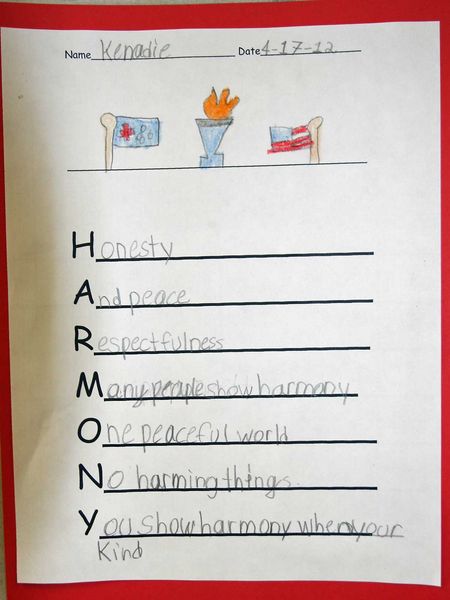 Name Kenadie Date 4-17-12
Honesty
And peace
Respectfulness
Many people show harmony
One peaceful world
No harming things.
You show harmony when your
Kind